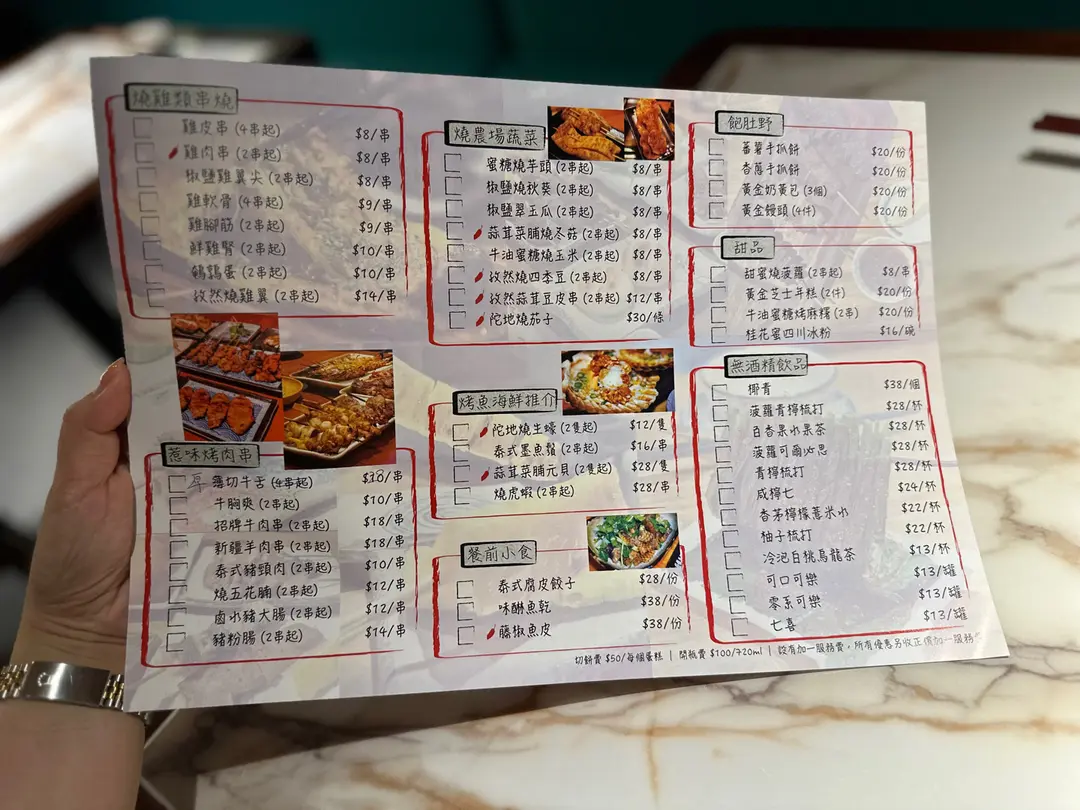 燒雞類串燒
雞皮串 (4串起) $8/串
雞肉串 (2串起) $8/串
椒鹽雞翼尖 (2串起) $8/串
雞軟骨 (4串起) $9/串
雞腳筋 (2串起) $9/串
鮮雞腎 (2串起) $10/串
鵪鶉蛋 (2串起) $10/串
孜然燒雞翼 (2串起) $14/串
惹味烤肉串
厚薄切牛舌 (4串起) $38/串
牛胸爽 (2串起) $10/串
招牌牛肉串 (2串起) $18/串
新疆羊肉串 (2串起) $18/串
泰式豬頸肉 (2串起) $10/串
燒五花腩 (2串起) $12/串
鹵水豬大腸 (2串起) $12/串
豬粉腸 (2串起) $14/串
燒農場蔬菜
蜜糖燒芋頭 (2串起) $8/串
椒鹽燒秋葵 (2串起) $8/串
椒鹽翠玉瓜 (2串起) $8/串
蒜茸菜脯燒冬菇 (2串起) $8/串
牛油蜜糖燒玉米 (2串起) $8/串
孜然燒四季豆 (2串起) $8/串
孜然蒜茸豆皮串 (2串起) $12/串
陀地燒茄子 $30/條
烤魚海鮮推介
陀地燒生蠔 (2隻起) $12/隻
泰式墨魚鬚 (2串起) $16/串
蒜茸菜脯元貝 (2隻起) $28/隻
燒虎蝦 (2串起) $28/串
餐前小食
泰式腐皮餃子 $28/份
味醂魚乾 $38/份
藤椒魚皮 $38/份
飽肚野
蕃薯手抓餅 $20/份
香蔥手抓餅 $20/份
黃金奶黃包 (3個) $20/份
黃金饅頭 (4件) $20/份
甜品
甜蜜燒菠蘿 (2串起) $8/串
黃金芝士年糕 (2件) $20/份
牛油蜜糖烤麻糬 (2串) $20/份
桂花蜜四川冰粉 $16/碗
無酒精飲品
椰青 $38/個
菠蘿青檸梳打 $28/杯
百香果水果茶 $28/杯
菠蘿可爾必思 $28/杯
青檸梳打 $28/杯
咸檸七 $24/杯
香茅檸檬薏米水 $22/杯
柚子梳打 $22/杯
冷泡白桃烏龍茶 $13/杯
可口可樂 $13/罐
零系可樂 $13/罐
七喜 $13/罐
切餅費 $50/每個蛋糕 | 開瓶費 $100/720ml | 設有加一服務費，所有優惠另收正價加一服務